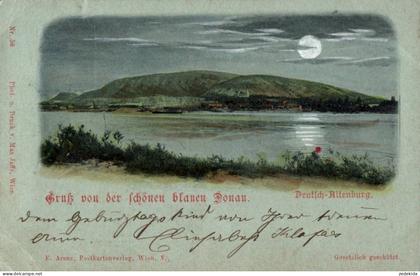 Nr. 36
Phot. u. Druck v. Max Jaffé, Wien.
Gruß von der schönen blauen Donau.
Deutsch-Altenburg.
dem Geburtstags Kind von Ihrer treuen
E. Arenz, Postkartenverlag, Wien, V.
Gesetzlich geschützt.
yedekild
www.delcampe.net